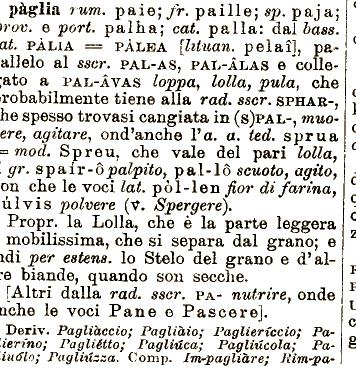 pàglia rum. paie; fr. paille; sp. paja;
prov. e port. palha; cat. palla: dal bass.
lat. PÀLIA = PÀLEA [lituan. pelaî], pa-
rallelo al sscr. PAL-AS, PAL-ÂLAS e colle-
gato a PAL-ÂVAS loppa, lolla, pula, che
probabilmente tiene alla rad. sscr. SPHAR-,
che spesso trovasi cangiata in (S)PAL-, muo-
vere, agitare, ond'anche l'a. a. ted. sprua
= mod. Spreu, che vale del pari lolla,
il gr. spaír-ô palpito, pal-lô scuoto, agito,
con che le voci lat. pòl-len fior di farina,
pùlvis polvere (v. Spergere).
Propr. la Lolla, che è la parte leggera
mobilissima, che si separa dal grano; e
indi per estens. lo Stelo del grano e d'al-
tre biande, quando son secche.
[Altri dalla rad. sscr. PA- nutrire, onde
anche le voci Pane e Pascere].
Deriv. Pagliàccio; Pagliàio; Paglieríccio; Pa-
glierino; Pagliétto; Pagliúca; Pagliúcola; Pa-
gliuòla; Pagliúzza. Comp. Im-pagliàre; Rim-pa-